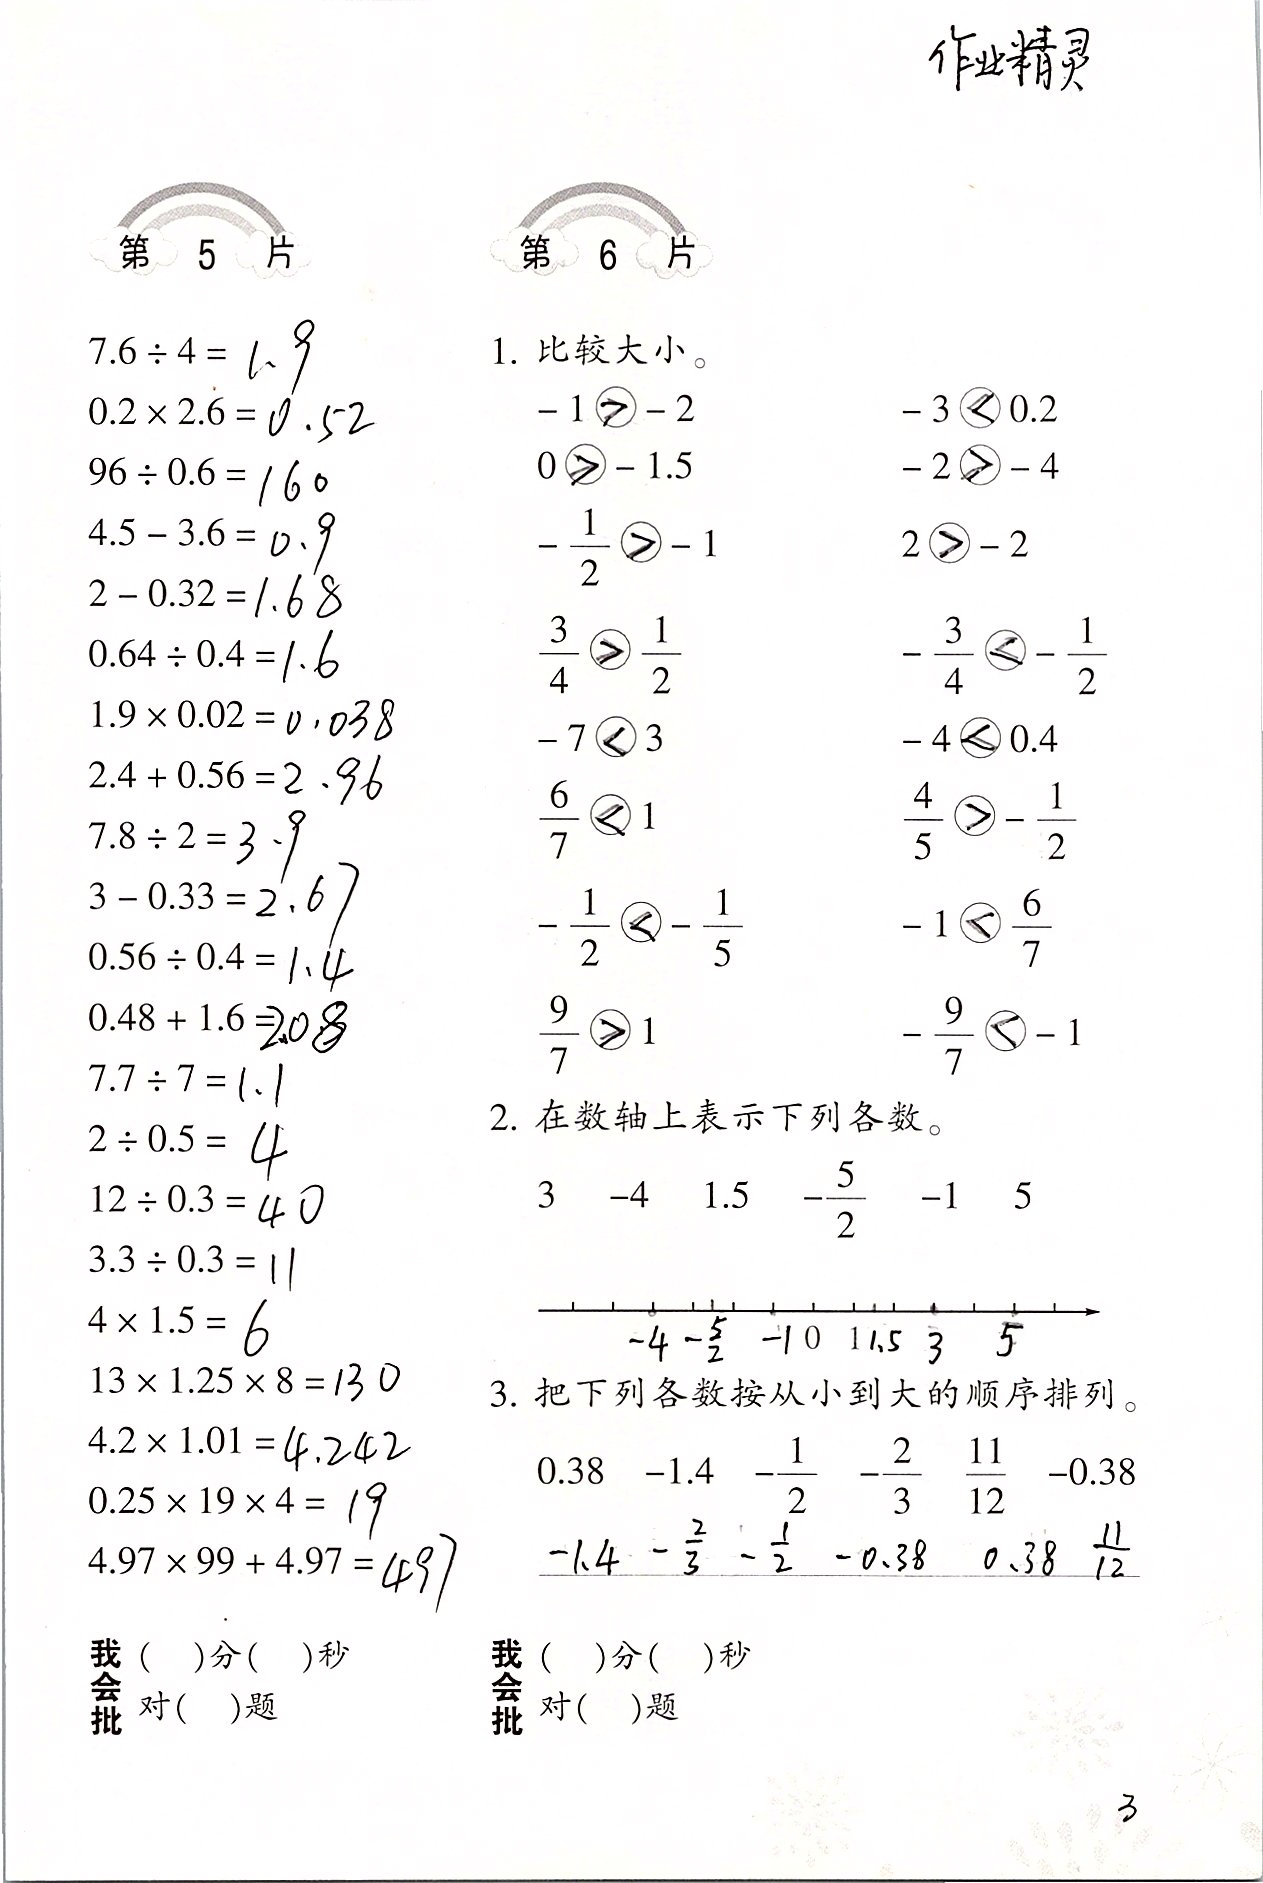 作业精灵
第 5 片
7.6 ÷ 4 = 1.9
0.2 × 2.6 = 0.52
96 ÷ 0.6 = 160
4.5 − 3.6 = 0.9
2 − 0.32 = 1.68
0.64 ÷ 0.4 = 1.6
1.9 × 0.02 = 0.038
2.4 + 0.56 = 2.96
7.8 ÷ 2 = 3.9
3 − 0.33 = 2.67
0.56 ÷ 0.4 = 1.4
0.48 + 1.6 = 2.08
7.7 ÷ 7 = 1.1
2 ÷ 0.5 = 4
12 ÷ 0.3 = 40
3.3 ÷ 0.3 = 11
4 × 1.5 = 6
13 × 1.25 × 8 = 130
4.2 × 1.01 = 4.242
0.25 × 19 × 4 = 19
4.97 × 99 + 4.97 = 497
我会批 ( )分( )秒
对( )题
第 6 片
1. 比较大小。
−1 > −2 −3 < 0.2
0 > −1.5 −2 > −4
−1/2 > −1 2 > −2
3/4 > 1/2 −3/4 < −1/2
−7 < 3 −4 < 0.4
6/7 < 1 4/5 > −1/2
−1/2 < −1/5 −1 < 6/7
9/7 > 1 −9/7 < −1
2. 在数轴上表示下列各数。
3 −4 1.5 −5/2 −1 5
−4 −5/2 −1 0 1 1.5 3 5
3. 把下列各数按从小到大的顺序排列。
0.38 −1.4 −1/2 −2/3 11/12 −0.38
−1.4 −2/3 −1/2 −0.38 0.38 11/12
我会批 ( )分( )秒
对( )题
3